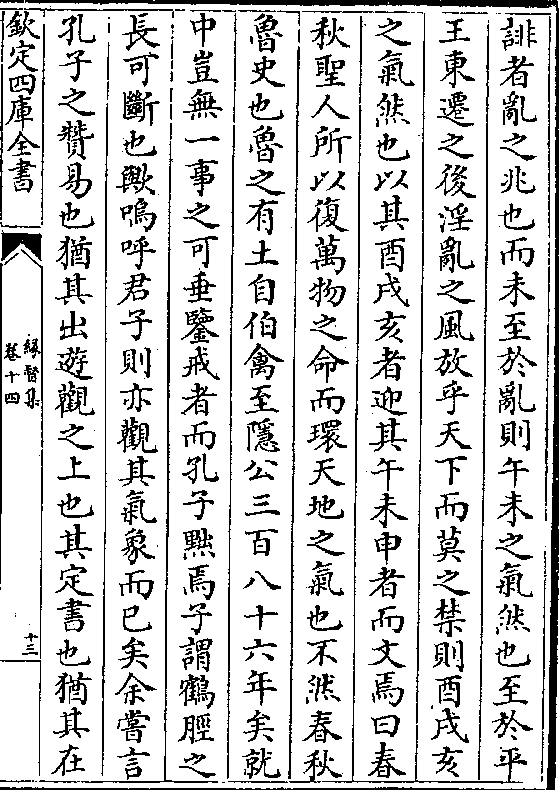 誹者亂之兆也而未至於亂則午未之氣然也至於平
王東遷之後淫亂之風放乎天下而莫之禁則酉戌亥
之氣然也以其酉戌亥者迎其午未申者而文焉曰春
秋聖人所以復萬物之命而環天地之氣也不然春秋
魯史也魯之有土自伯禽至隱公三百八十六年矣就
中豈無一事之可垂鑒戒者而孔子黙焉子謂鶴脛之
長可斷也歟嗚呼君子則亦觀其氣象而已矣余嘗言
孔子之贊易也猶其出遊觀之上也其定書也猶其在
欽定四庫全書
緣督集
卷十四
十三